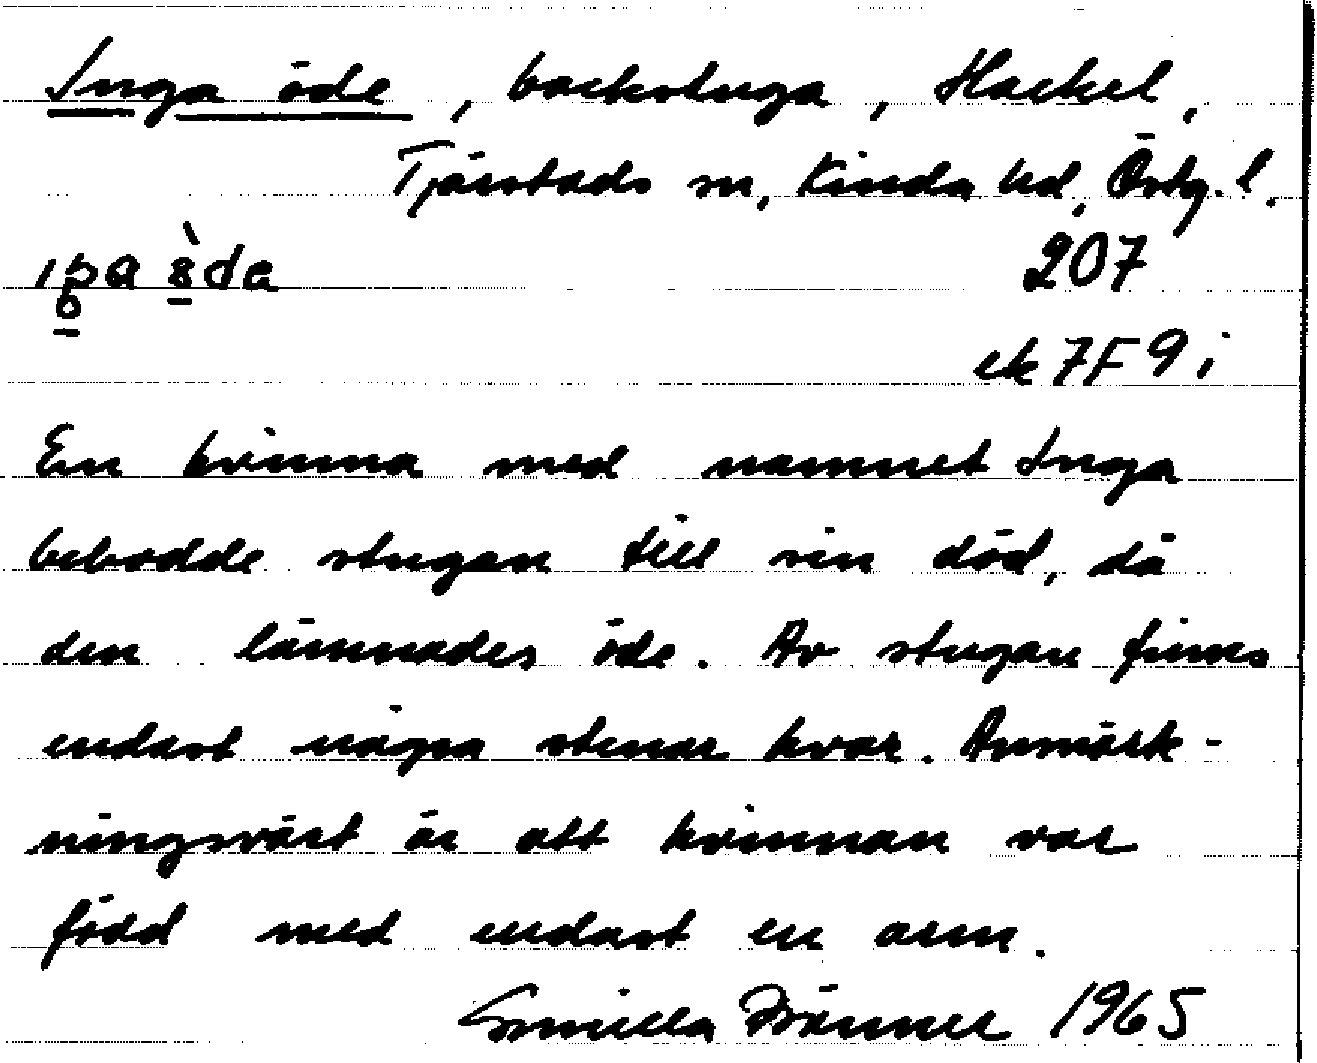 Inga öde, backstuga, Hackel,
Tjärstads sn, Kinda hd, Östg. l.
207
ek 7F 9 i
En kvinna med namnet Inga
bebodde stugan till sin död, då
den lämnades öde. Av stugan finns
endast några stenar kvar. Anmärk-
ningsvärt är att kvinnan var
född med endast en arm.
Gunilla Brönner 1965